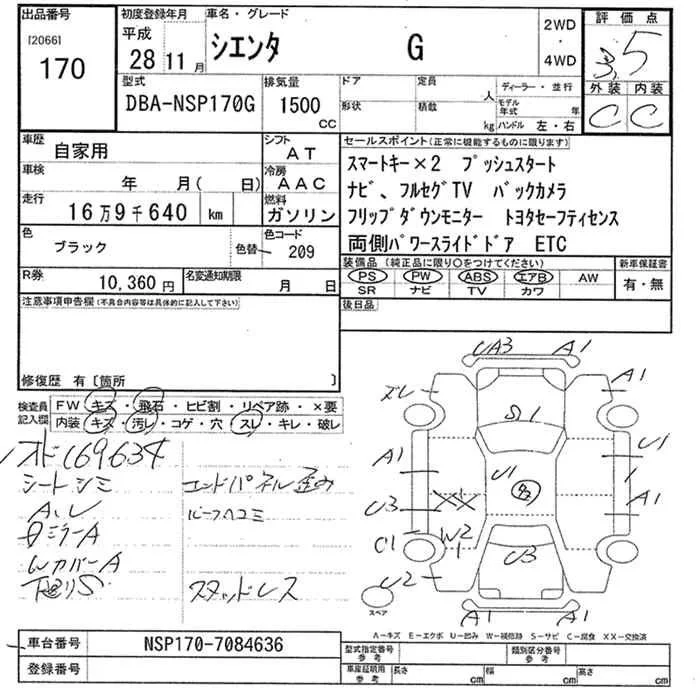 出品番号
[2066]
170
初度登録年月
平成
28 11月
車名・グレード
シエンタ G
2WD
・
4WD
評価点
3.5
外装 内装
C C
型式
DBA-NSP170G
排気量
1500
CC
ドア
形状
定員
人
積載
kg
ディーラー・並行
モデル年式 年
ハンドル 左・右
車歴
自家用
シフト
AT
車検
年 月( 日)
冷房
AAC
走行
16万9千640 km
燃料
ガソリン
色
ブラック
色替
色コード
209
R券
10,360円
名変通知期限
月 日
セールスポイント(正常に機能するものに限ります)
スマートキー×2 プッシュスタート
ナビ、フルセグTV バックカメラ
フリップダウンモニター トヨタセーフティセンス
両側パワースライドドア ETC
装備品(純正品に限り○をつけてください)
PS PW ABS エアB AW
SR ナビ TV カワ
新車保証書
有・無
後日品
注意事項申告欄(不具合内容等は具体的に記入して下さい)
修復歴 有〔箇所 〕
検査員記入欄
FW キズ・飛石・ヒビ割・リペア跡・×要
内装 キズ・汚レ・コゲ・穴・スレ・キレ・破レ
169634
シートシミ
エンドパネル歪み
A、U
ルーフヘコミ
ミラーA
WカバーA
下廻りS
スタッドレス
UA3 A1
ズレ A1
S1
A1 U1 U1
U3 XX A1
C1 W2 U3
U2
A1 A1
スペア
A-キズ E-エクボ U-凹み W-補修跡 S-サビ C-腐食 XX-交換済
車台番号 NSP170-7084636
登録番号
型式指定番号
参考
類別区分番号
参考
車庫証明用
参考
長さ cm
幅 cm
高さ cm